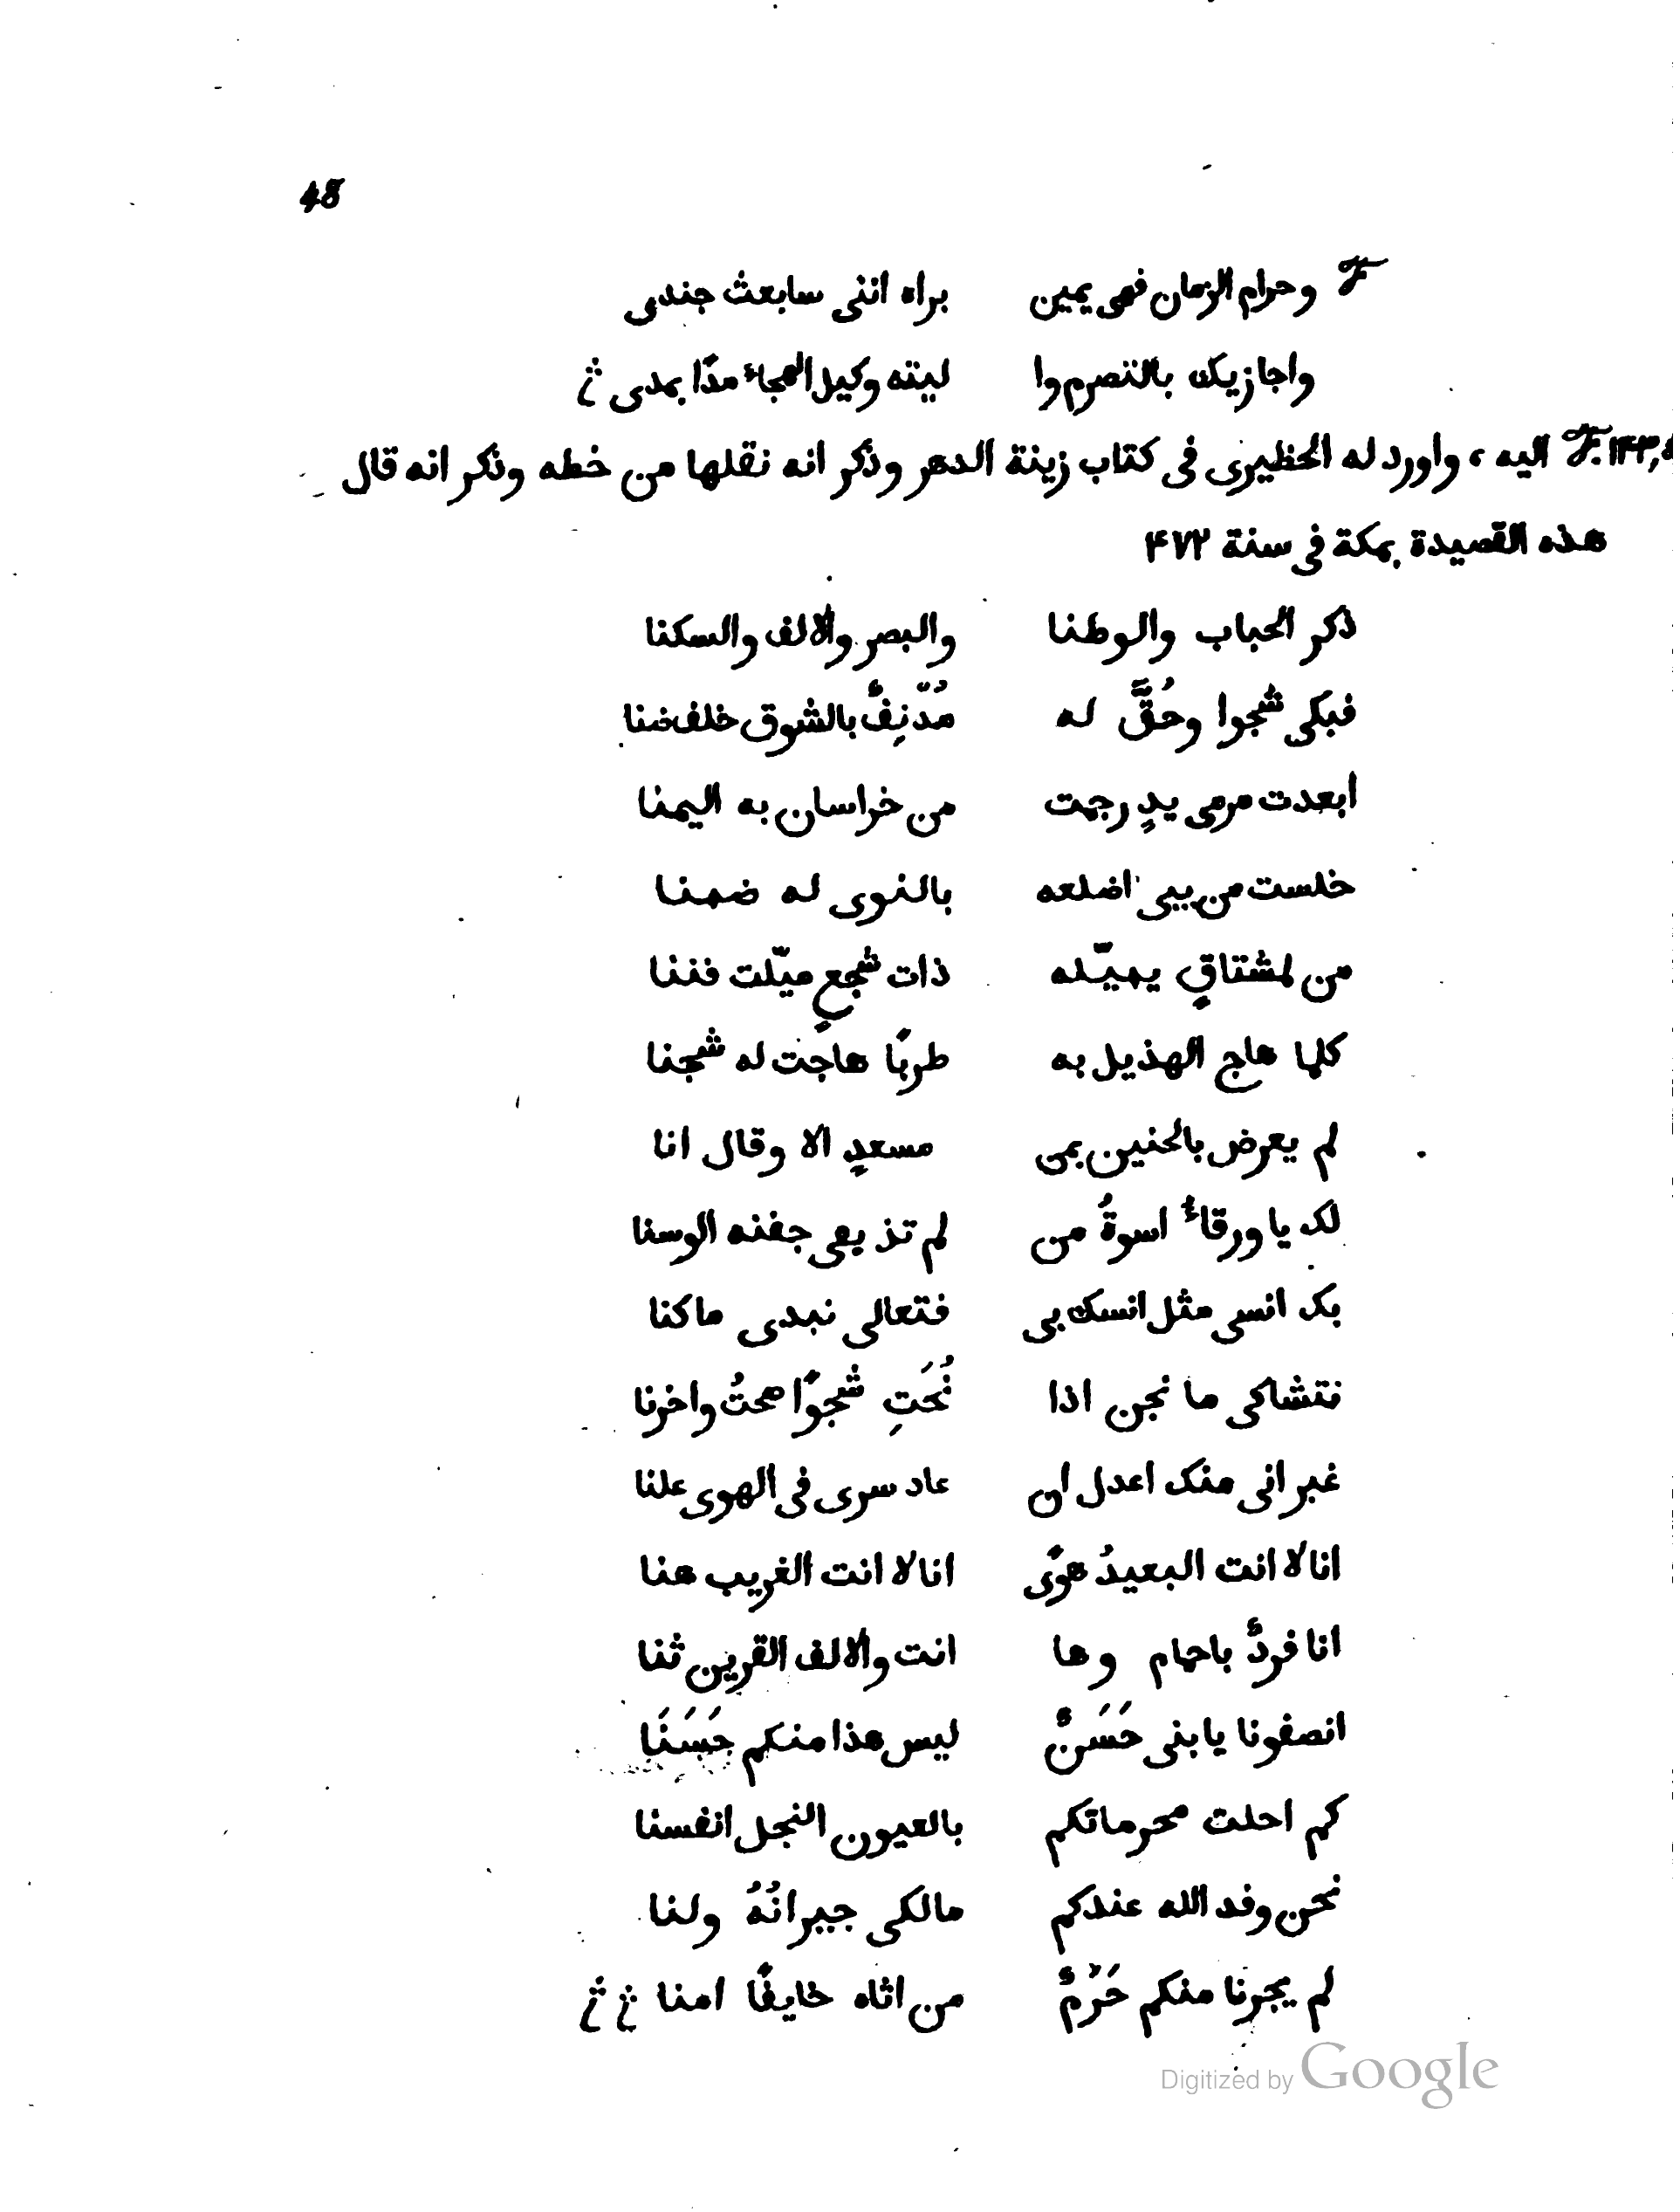 48
F وحرام الزمان فهى يمين براه اننى سابعث جندى
واجازيك بالتصرم وا ليته وكيل الهجاء مدّا بمدى ثم
F. ١٤٣, اليه ، واورد له الحظيرى فى كتاب زينة الدهر وذكر انه نقلها من خطه وذكر انه قال
هذه القصيدة بمكة فى سنة ۴٧٢
ذكر الحباب والوطنا والبصر والالف والسكنا
فبكى شجوا وحُقَّ له مُدْنِفٌ بالشوق خلف ضنا
ابعدت مرمى يدٍ رجمت من خراسان به اليمنا
خلست من بين اضلعه بالنوى له ضمنا
من لمشتاقٍ يميّله ذات شجعٍ ميّلت فننا
كلما هاج الهذيل به طربًا هاجت له شجنا
لم يعرض بالحنين بمن مسعدٍ الا وقال انا
لك يا ورقاءُ اسوةُ من لم تذيعى جفنه الوسنا
بك انسى مثل انسك بى فتعالى نبدى ماكنا
نتشاكى ما نجن اذا نُحَتِ شجوًا صحتُ واخزنا
غير انى منك اعدل ان عاد سرى فى الهوى علنا
انا لا انت البعيدُ هوًى انا لا انت الغريب هنا
انا فردٌ باحمام وها انت والالف القرين ثنا
انصفونا يا بنى حَسَنٌ ليس هذا منكم حَسَنَا
كم احلت محرماتكم بالعيون النجل انفسنا
نحن وفد الله عندكم مالكى جيرانُهُ ولنا
لم يجرنا منكم حَرَمٌ من اتاه خايفًا امنا ثم ثم
Digitized by Google